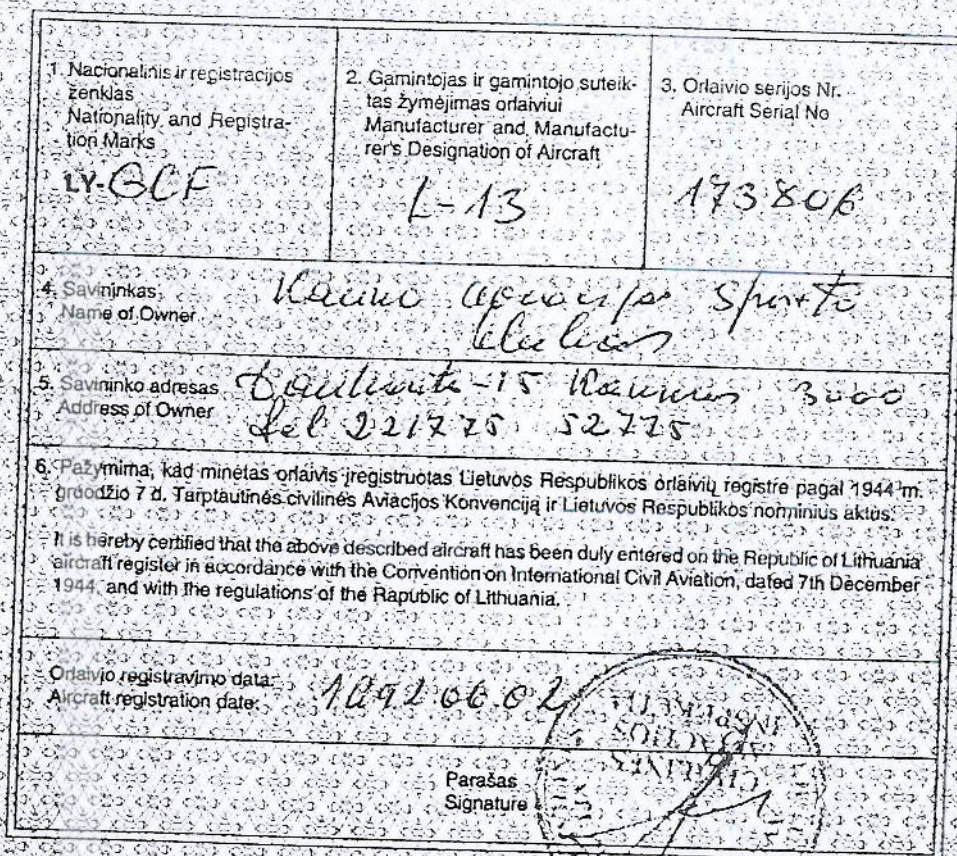 1. Nacionalinis ir registracijos
ženklas
Nationality and Registra-
tion Marks
LY-GCF
2. Gamintojas ir gamintojo suteik-
tas žymėjimas orlaiviui
Manufacturer and Manufactu-
rer's Designation of Aircraft
L-13
3. Orlaivio serijos Nr.
Aircraft Serial No
173806
4. Savininkas
Name of Owner
Kauno sporto
klubas
5. Savininko adresas
Address of Owner
-15 Kaunas 3000
tel 221775 52775
6. Pažymima, kad minėtas orlaivis įregistruotas Lietuvos Respublikos orlaivių registre pagal 1944 m.
gruodžio 7 d. Tarptautinės civilinės Aviacijos Konvenciją ir Lietuvos Respublikos norminius aktus.
It is hereby certified that the above described aircraft has been duly entered on the Republic of Lithuania
aircraft register in accordance with the Convention on International Civil Aviation, dated 7th December
1944, and with the regulations of the Rapublic of Lithuania.
Orlaivio registravimo data:
Aircraft registration date:
1992.06.02
Parašas
Signature